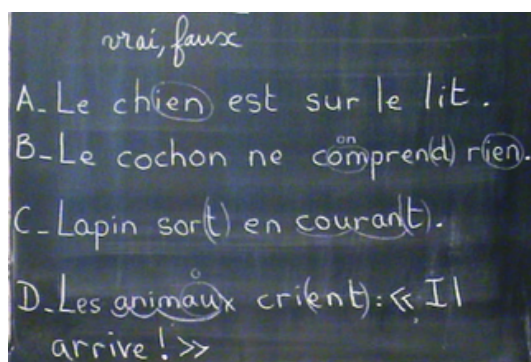 vrai, faux
A_Le chien est sur le lit.
on
B_Le cochon ne compren(d) rien.
C_Lapin sor(t) en couran(t).
o
D_Les animaux cri(ent) : « Il
arrive ! »